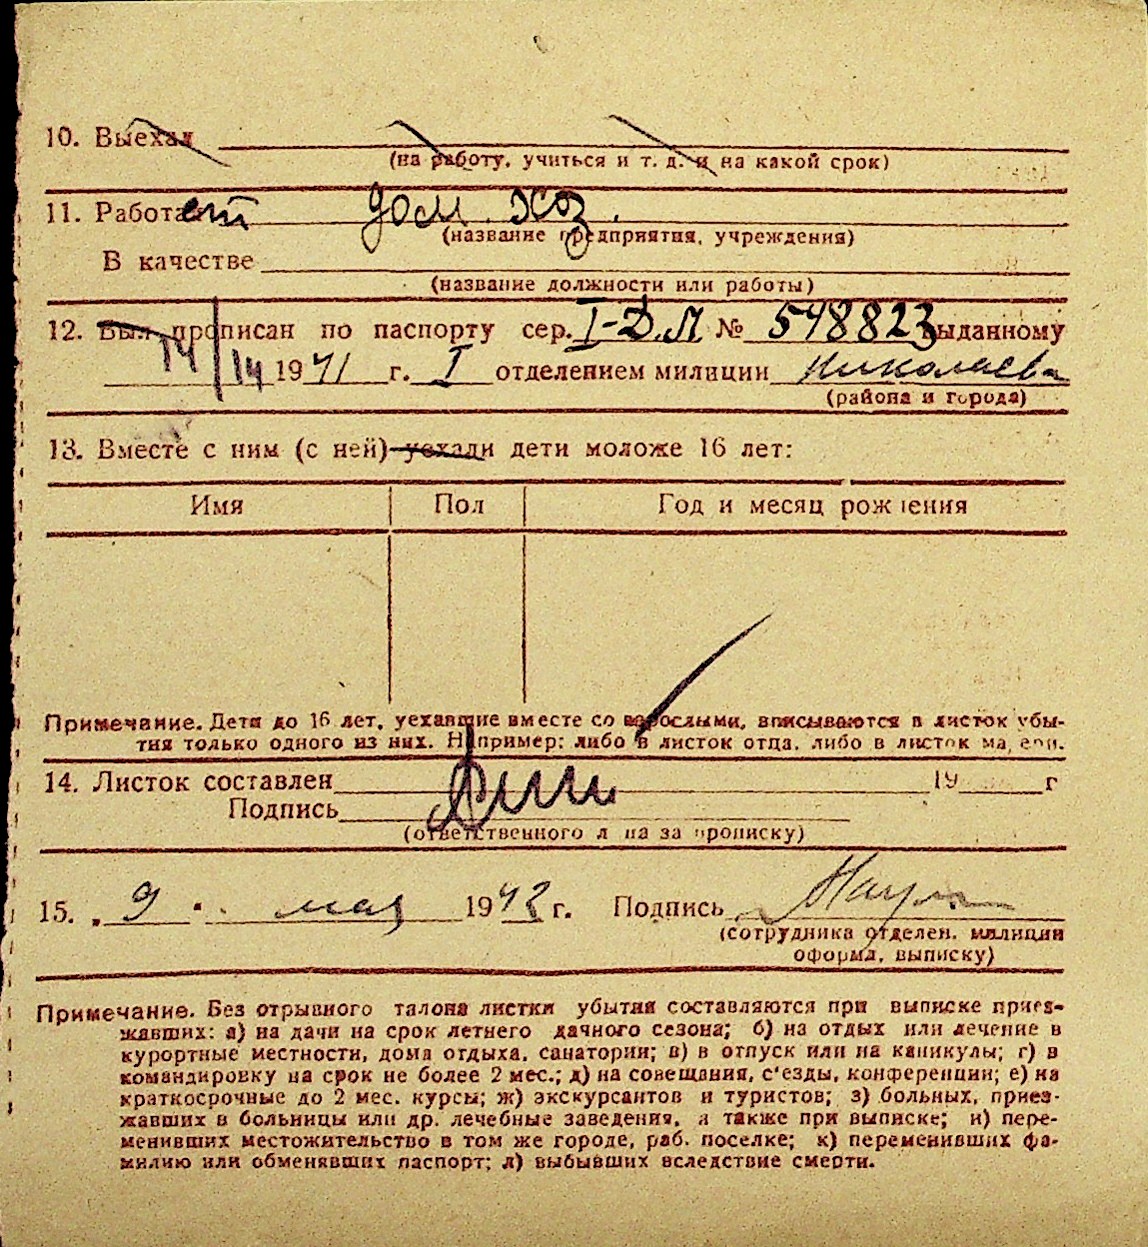 10. Выехал
(на работу, учиться и т. д. и на какой срок)
11. Работает дом. хоз.
(название предприятия, учреждения)
В качестве
(название должности или работы)
12. Был прописан по паспорту сер. I-Д.Л. № 548823 выданному
14/14 1941 г. I отделением милиции Николаева
(района и города)
13. Вместе с ним (с ней) уехали дети моложе 16 лет:
Имя Пол Год и месяц рождения
Примечание. Дети до 16 лет, уехавшие вместе со взрослыми, вписываются в листок убы-
тия только одного из них. Например: либо в листок отца, либо в листок матери.
14. Листок составлен 19 г
Подпись
(ответственного лица за прописку)
15. 9 мая 1942 г. Подпись
(сотрудника отделен. милиции
оформл. выписку)
Примечание. Без отрывного талона листки убытия составляются при выписке приез-
жавших: а) на дачи на срок летнего дачного сезона; б) на отдых или лечение в
курортные местности, дома отдыха, санатории; в) в отпуск или на каникулы; г) в
командировку на срок не более 2 мес.; д) на совещания, с'езды, конференции; е) на
краткосрочные до 2 мес. курсы; ж) экскурсантов и туристов; з) больных, приез-
жавших в больницы или др. лечебные заведения, а также при выписке; и) пере-
менивших местожительство в том же городе, раб. поселке; к) переменивших фа-
милию или обменявших паспорт; л) выбывших вследствие смерти.